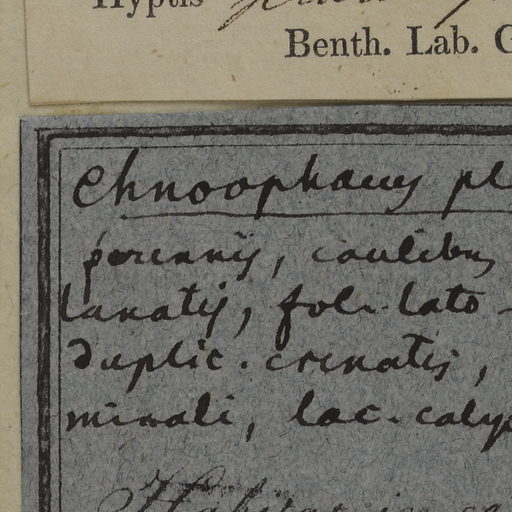 Hyptis
Benth. Lab. G
Chnoophanus pl
perennis, caulibus
lanatis, fol. lato-
duplic. crenatis,
minali, lac. calyc
Habitat in